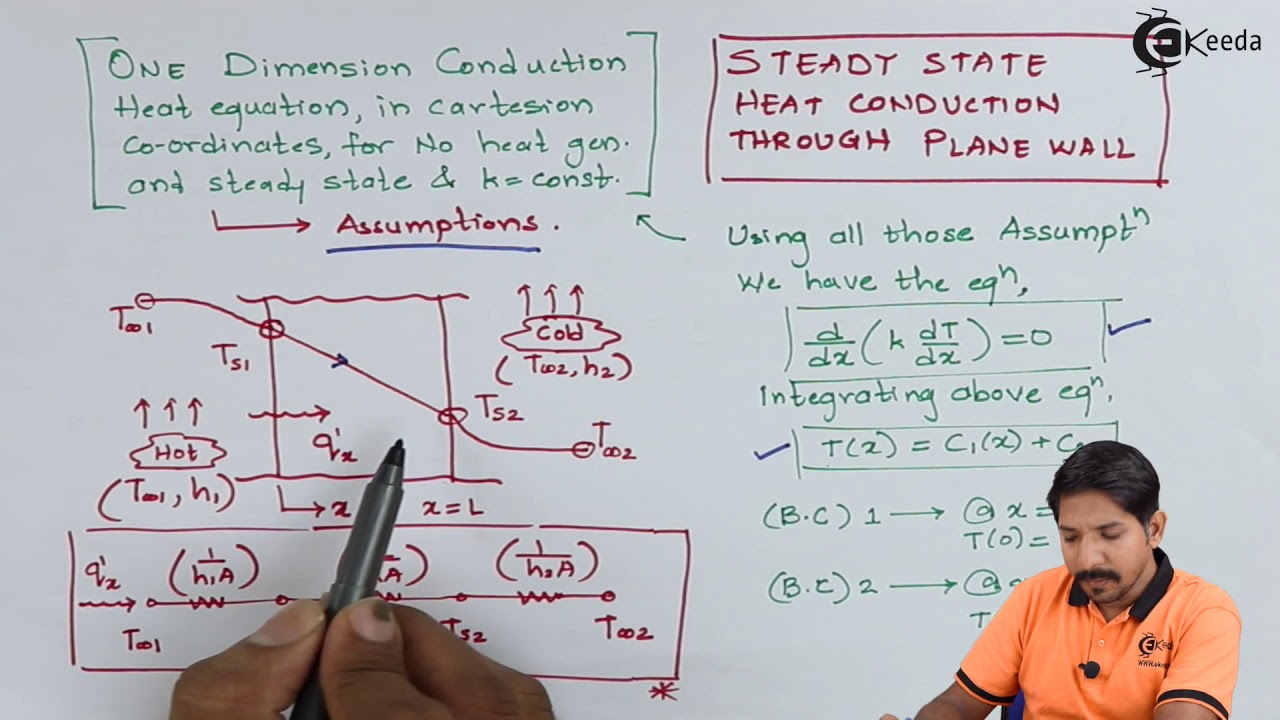 ONE Dimension Conduction
Heat equation, in cartesion
Co-ordinates, for No heat gen.
and steady state & k = const.
Assumptions.
STEADY STATE
HEAT CONDUCTION
THROUGH PLANE WALL
eKeeda
Using all those Assumptⁿ
We have the eqⁿ,
d/dx (k dT/dx) = 0
Integrating above eqⁿ,
T(x) = C₁(x) + C
(B.C) 1 → @ x =
T(0) =
(B.C) 2 → @
T
T∞1
Ts1
Cold
(T∞2, h₂)
Ts2
q'x
T∞2
Hot
(T∞1, h₁)
x
x = L
q'x
(1/h₁A)
A)
(1/h₂A)
T∞1
Ts2
T∞2
*
eKeeda